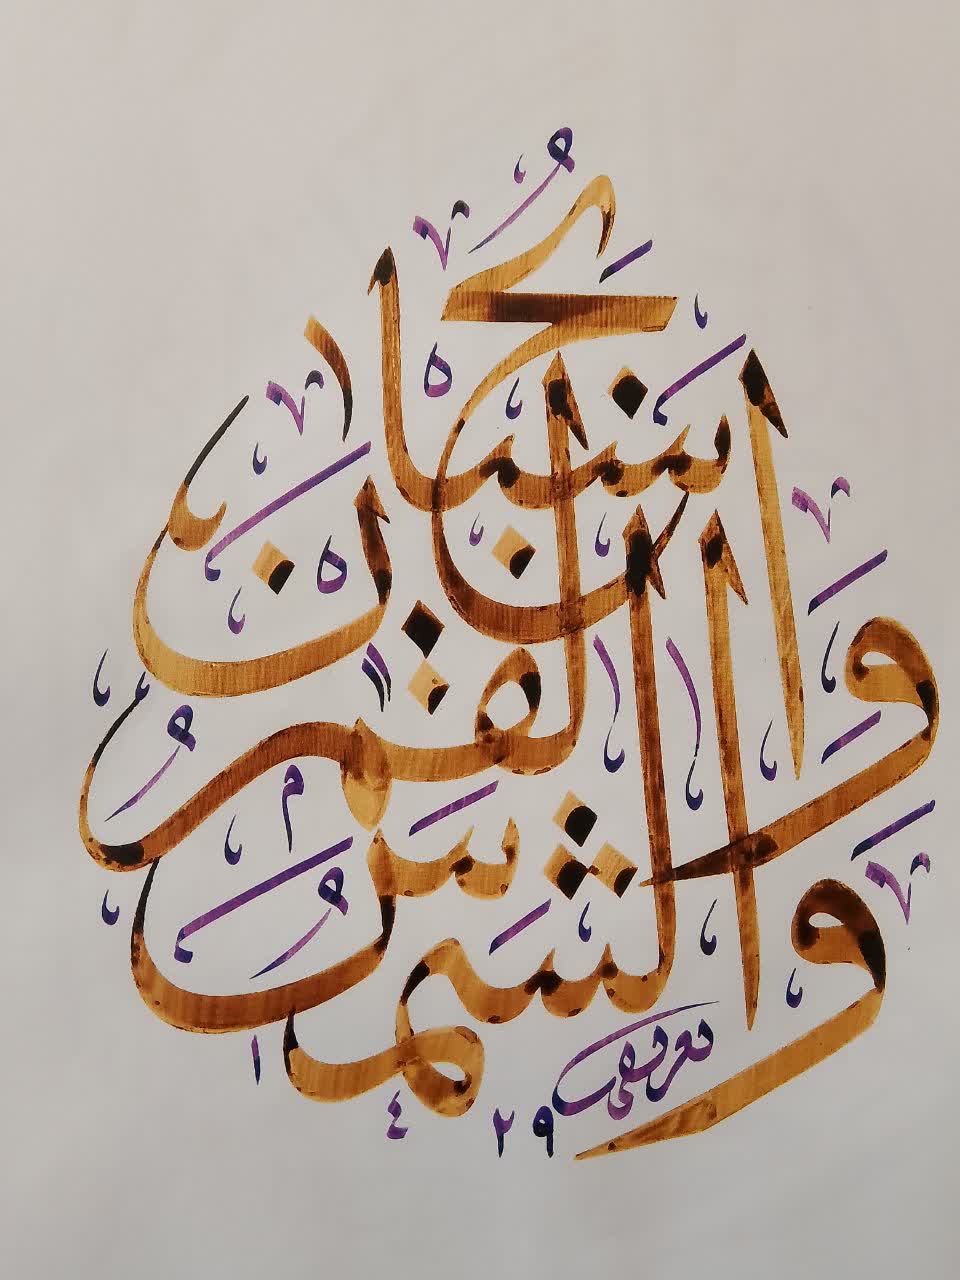 وَالشَّمْسَ
وَالْقَمَرَ
حُسْبَانًا
١٤٢٩